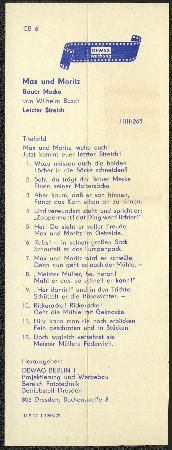 CB 6
DEWAG
WERBUNG
Max und Moritz
Bauer Mecke
von Wilhelm Busch
Letzter Streich
Titelbild
Max und Moritz, wehe euch!
Jetzt kommt euer letzter Streich!
1. Wozu müssen auch die beiden
Löcher in die Säcke schneiden?
2. Seht, da trägt der Bauer Mecke
Einen seiner Maltersäcke.
3. Aber kaum, daß er von hinnen,
Fängt das Korn schon an zu rinnen.
4. Und verwundert steht und spricht er:
„Zapperment! dat Ding werd lichter!"
5. Hei! Da sieht er voller Freude
Max und Moritz im Getreide.
6. Rabs! – in seinen großen Sack
Schaufelt er das Lumpenpack.
7. Max und Moritz wird es schwüle,
Denn nun geht es nach der Mühle. –
8. „Meister Müller, he, heran!
Mahl er das, so schnell er kann!"
9. „Her damit!" und in den Trichter
Schüttelt er die Bösewichter. –
10. Rickeracke! Rickeracke!
Geht die Mühle mit Geknacke.
11. Hier kann man sie noch erblicken
Fein geschroten und in Stücken.
12. Doch sogleich verzehret sie
Meister Müllers Federvieh.
Herausgeber:
DEWAG BERLIN
Projektierung und Werbebau
Bereich Fototechnik
Betriebsteil Dresden
806 Dresden,